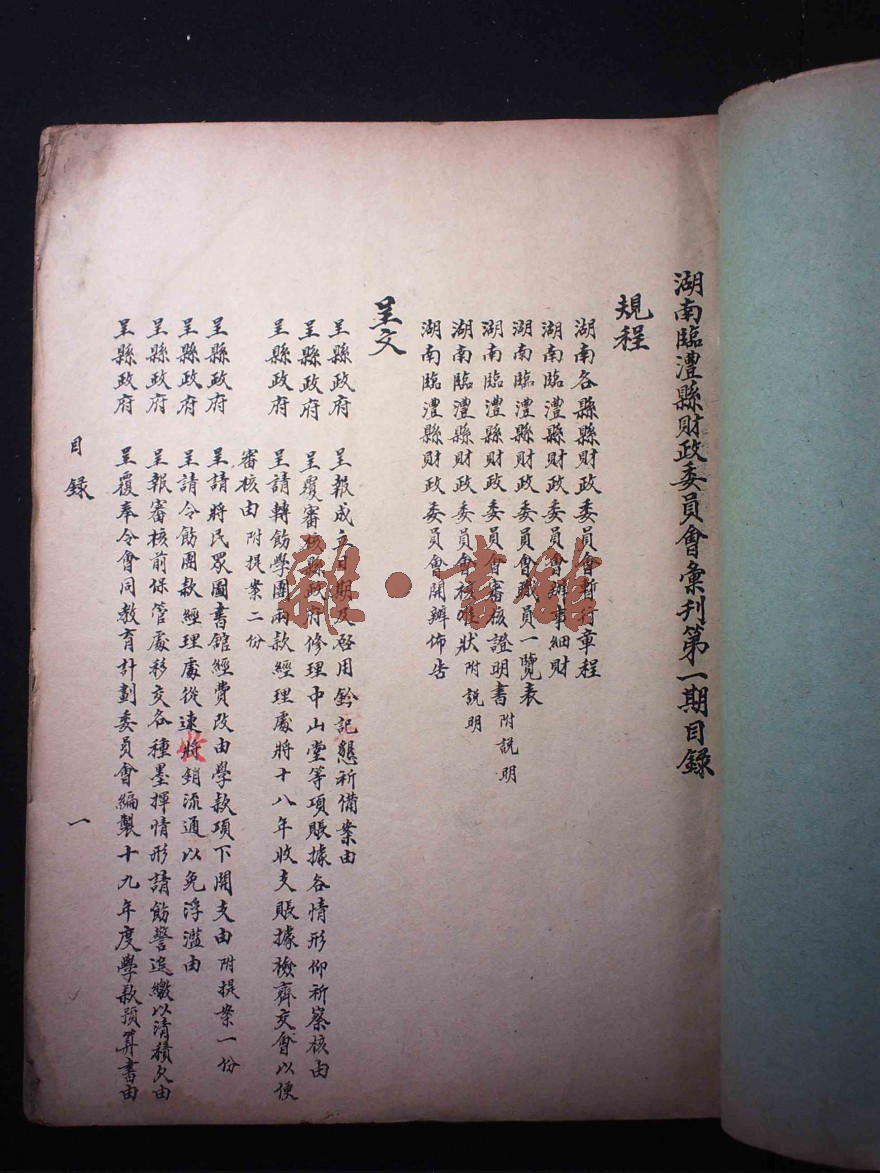 湖南臨澧縣財政委員會彙刊第一期目錄
規程
湖南各縣縣財政委員會暫行章程
湖南臨澧縣財政委員會辦事細財
湖南臨澧縣財政委員會職員一覽表
湖南臨澧縣財政委員會審核證明書附説明
湖南臨澧縣財政委員會核准狀附説明
湖南臨澧縣財政委員會開辦佈告
呈文
呈縣政府 呈報成立日期及啓用鈐記懇祈備案由
呈縣政府 呈覆審核縣政府修理中山堂等項賬據各情形仰祈察核由
呈縣政府 呈請轉飭學團兩款經理處將十八年收支賬據檢齊交會以便
審核由附提案二份
呈縣政府 呈請將民眾圖書舘經費改由學款項下開支由附提案一份
呈縣政府 呈請令飭團款經理處從速將銷流通以免浮濫由
呈縣政府 呈報審核前保管處移交各種墨揮情形請飭警追繳以清積欠由
呈縣政府 呈覆奉令會同教育計劃委員會編製十九年度學款預算書由
目錄 一
雜·書館